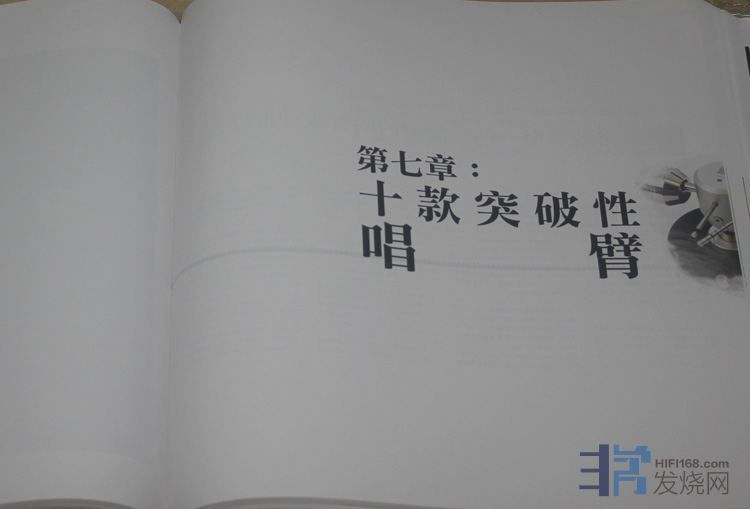 第七章：
十款突破性
唱臂
非常
HIFI168.com
发烧网